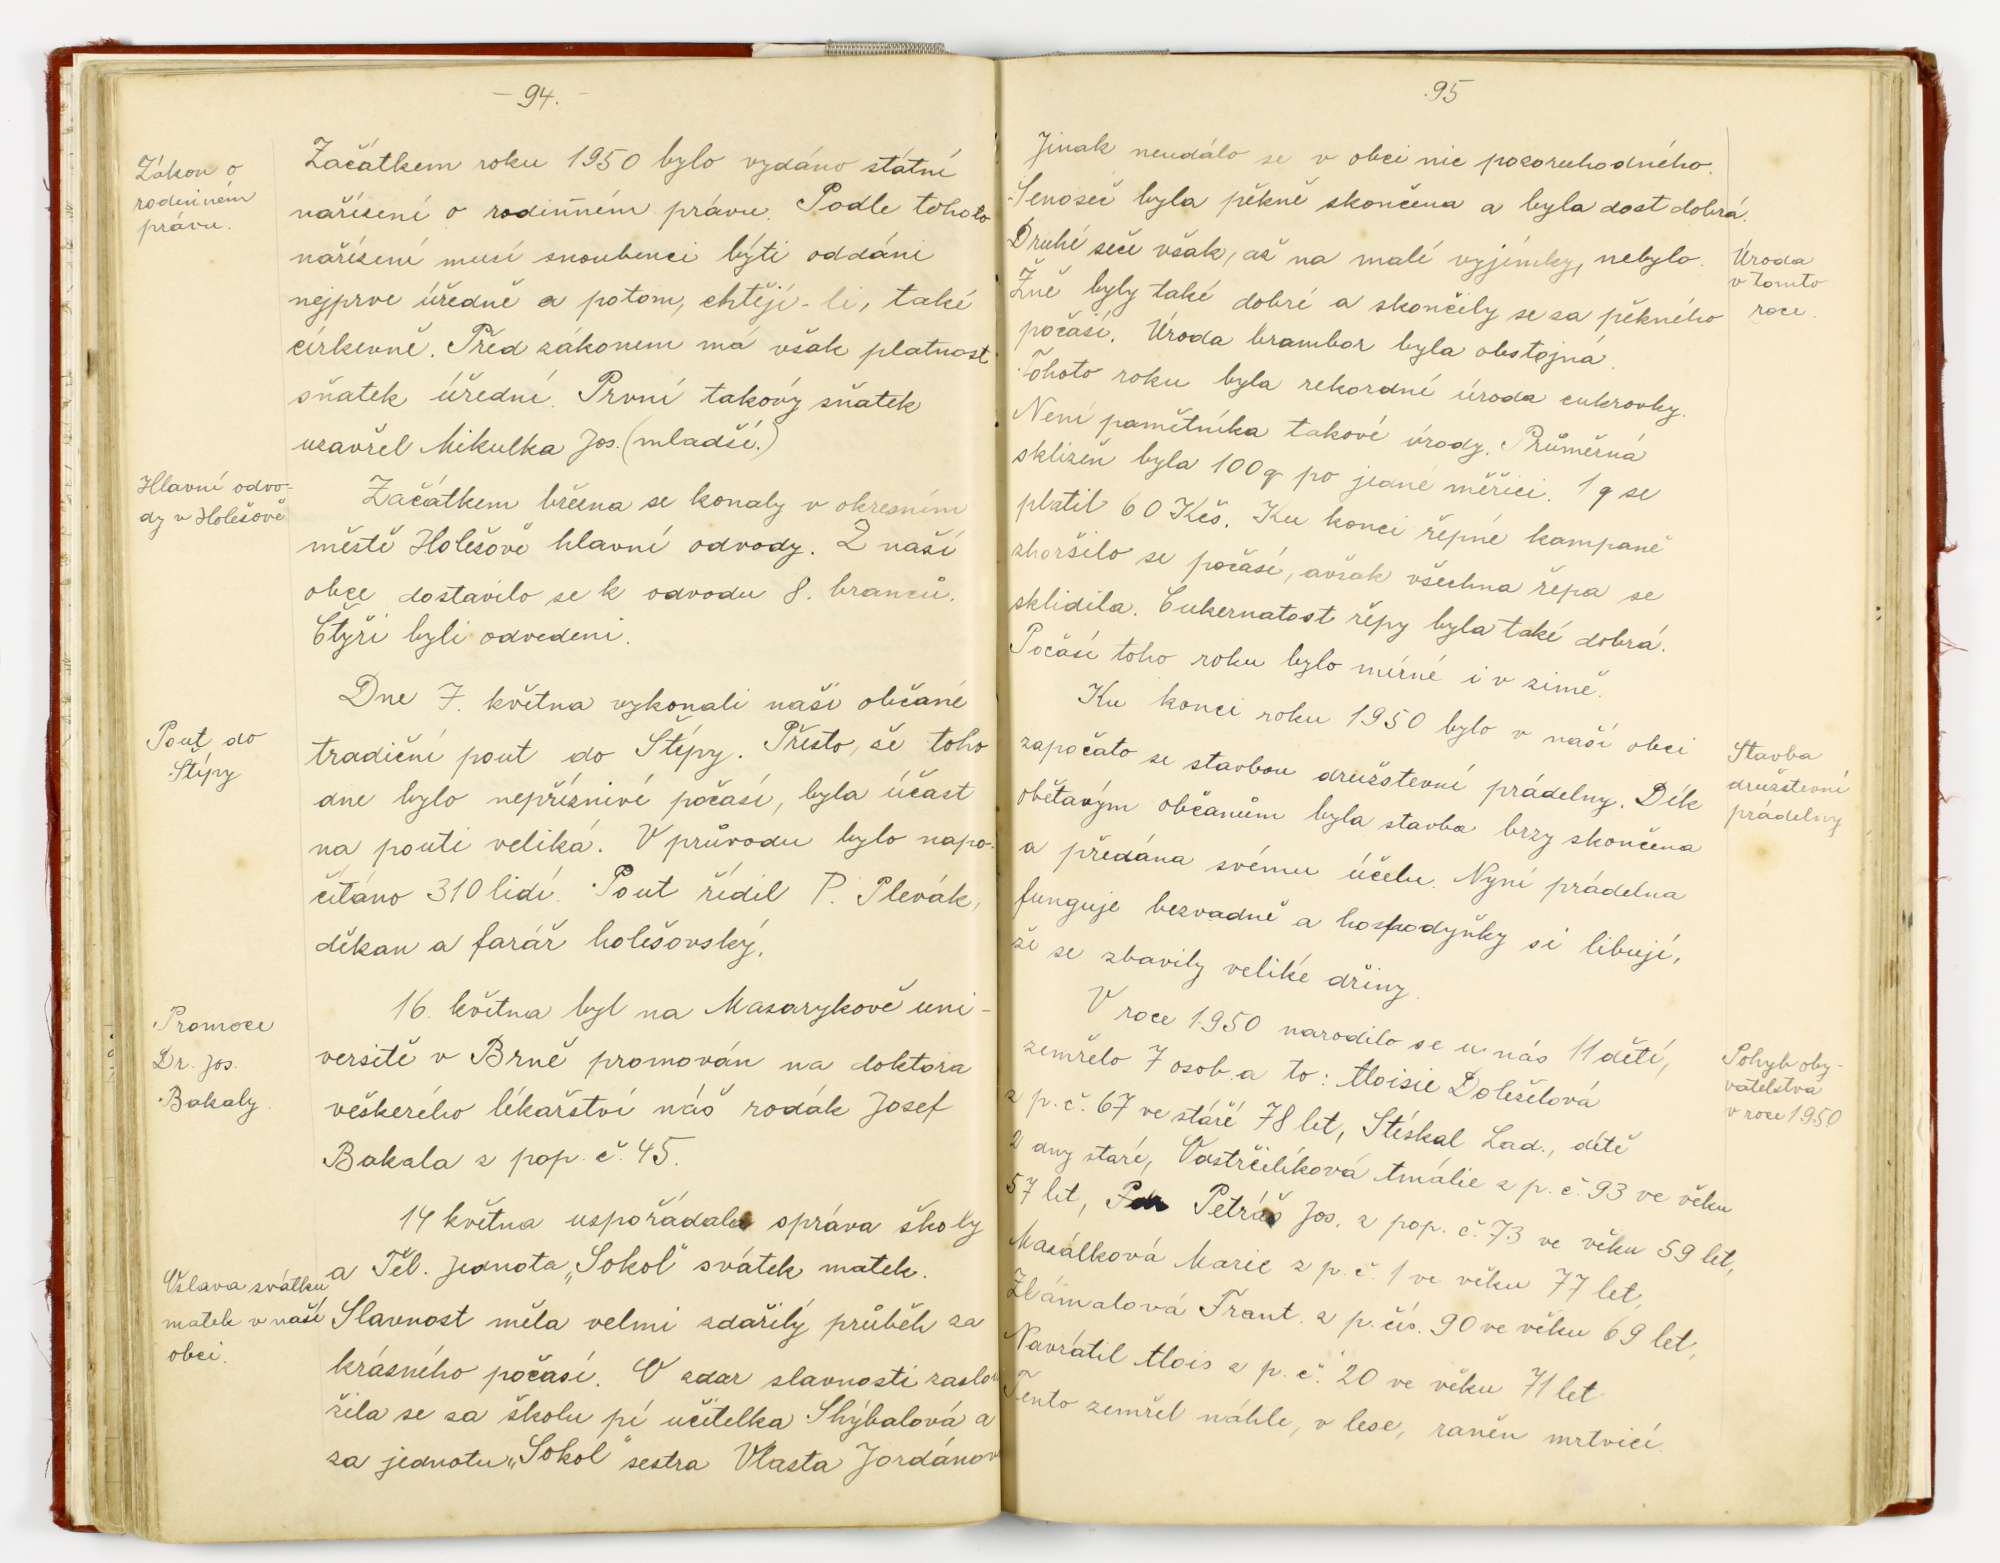 - 94. -
Zákon o
rodinném
právu.
Začátkem roku 1950 bylo vydáno státní
nařízení o rodinném právu. Podle tohoto
nařízení musí snoubenci býti oddáni
nejprve úředně a potom, chtějí-li, také
církevně. Před zákonem má však platnost
sňatek úřední. První takový sňatek
uzavřel Mikulka Jos. (mladší.)
Hlavní odvo-
dy v Holešově
Začátkem března se konaly v okresním
městě Holešově hlavní odvody. Z naší
obce dostavilo se k odvodu 8. branců.
Čtyři byli odvedeni.
Pout do
Štípy
Dne 7. května vykonali naši občané
tradiční pout do Štípy. Přesto, že toho
dne bylo nepříznivé počasí, byla účast
na pouti veliká. V průvodu bylo napo-
čítáno 310 lidí. Pout řídil P. Plevák,
děkan a farář holešovský.
Promoce
Dr. Jos.
Bakaly.
16. května byl na Masarykově uni-
versitě v Brně promován na doktora
veškerého lékařství náš rodák Josef
Bakala z pop. č. 45.
14 května uspořádala správa školy
a Těl. jednota „Sokol" svátek matek.
Oslava svátku
matek v naší
obci.
Slavnost měla velmi zdařilý průběh za
krásného počasí. O zdar slavnosti zaslou
žila se za školu pí učitelka Shýbalová a
za jednotu „Sokol" sestra Vlasta Jordánov
95
Jinak neudálo se v obci nic pozoruhodného.
Senoseč byla pěkně skončena a byla dost dobrá.
Druhé seče však, až na malé vyjímky, nebylo.
Úroda
v tomto
roce.
Žně byly také dobré a skončily se za pěkného
počasí. Úroda brambor byla obstojná.
Tohoto roku byla rekordní úroda cukrovky.
Není pamětníka takové úrody. Průměrná
sklizeň byla 100 q po jedné měřici. 1 q se
platil 60 Kčs. Ku konci řepné kampaně
zhoršilo se počasí, avšak všechna řepa se
sklidila. Cukernatost řepy byla také dobrá.
Počasí toho roku bylo mírné i v zimě.
Ku konci roku 1950 bylo v naší obci
započato se stavbou družstevní prádelny. Dík
Stavba
družstevní
prádelny
obětavým občanům byla stavba brzy skončena
a předána svému účelu. Nyní prádelna
funguje bezvadně a hospodyňky si libují,
že se zbavily veliké dřiny.
V roce 1950 narodilo se u nás 11 dětí,
zemřelo 7 osob a to: Aloisie Doleželová
Pohyb oby-
vatelstva
v roce 1950
z p. č. 67 ve stáří 78 let, Stéskal Lad., dítě
2 dny staré, Vostrčilíková Amálie z p. č. 93 ve věku
57 let, Petráš Jos. z pop. č. 73 ve věku 59 let,
Masálková Marie z p. č. 1 ve věku 77 let,
Zlámalová Frant. z p. čís. 90 ve věku 69 let,
Navrátil Alois z p. č. 20 ve věku 71 let
Tento zemřel náhle, v lese, raněn mrtvicí.